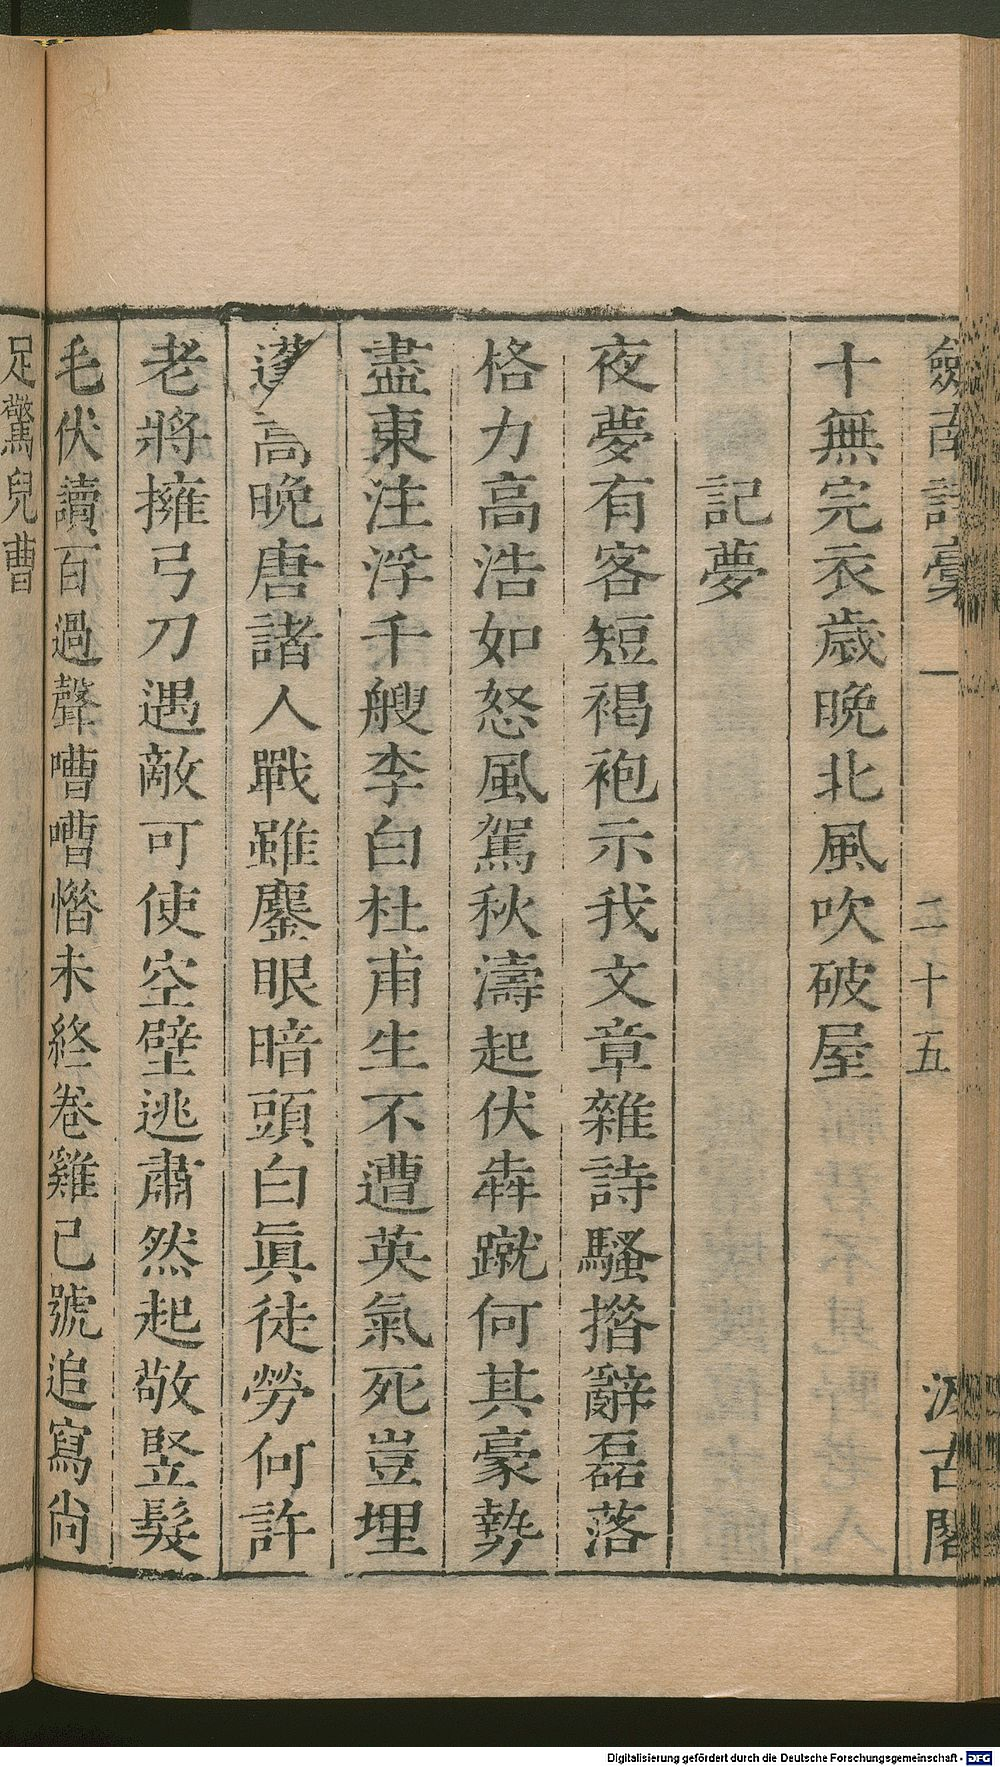 劎南詩稾 一 二十五 汲古閣
十無完衣歲晚北風吹破屋
記夢
夜夢有客短褐袍示我文章雜詩騷措辭磊落
格力高浩如怒風駕秋濤起伏犇蹴何其豪勢
盡東注浮千艘李白杜甫生不遭英氣死豈埋
蓬高晚唐諸人戰雖鏖眼暗頭白眞徒勞何許
老將擁弓刀遇敵可使空壁逃肅然起敬竪髮
毛伏讀百過聲嘈嘈惜未終卷雞已號追寫尚
足驚兒曹
Digitalisierung gefördert durch die Deutsche Forschungsgemeinschaft - DFG